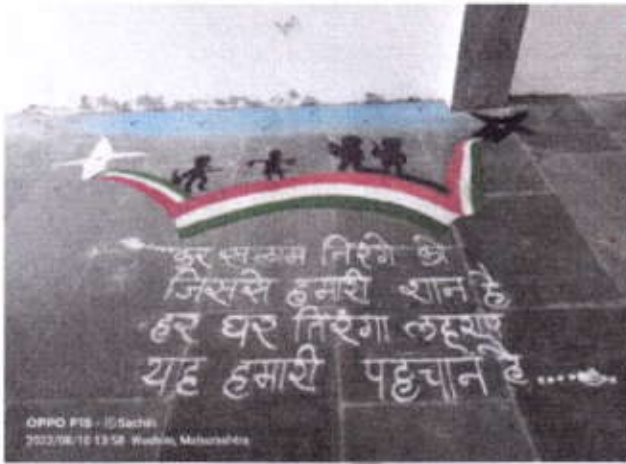 कर सलाम तिरंगे को
जिससे हमारी शान है
हर घर तिरंगा लहराए
यह हमारी पहचान है .....
OPPO F15 · ©Sachin
2022/08/10 13:58 Washim, Maharashtra